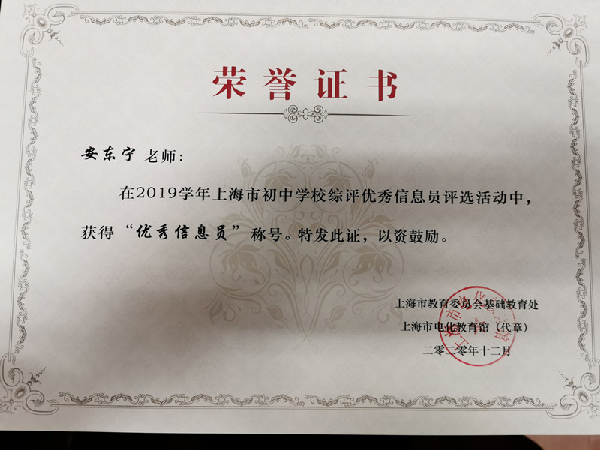 荣誉证书
安东宁 老师：
在2019学年上海市初中学校综评优秀信息员评选活动中，
获得“优秀信息员”称号。特发此证，以资鼓励。
上海市教育委员会基础教育处
上海市电化教育馆（代章）
二零二零年十二月